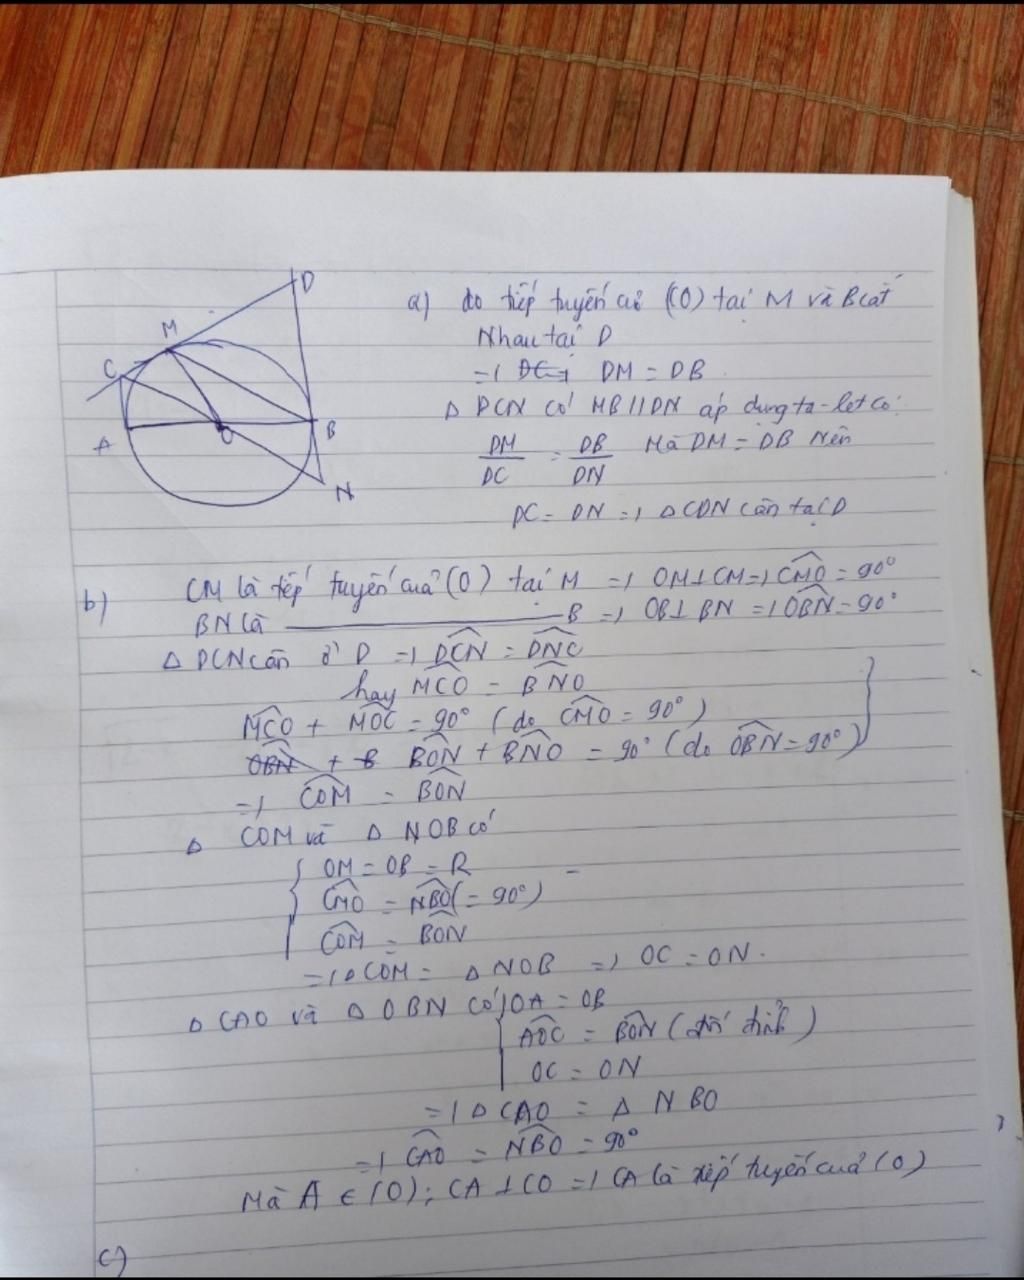 D
M
C
A
O
B
N
a) do tiếp tuyến củ (O) tại M và B cắt
Nhau tại D
=) DC=) DM = DB
Δ DCN có MB // DN áp dụng ta-let có:
DM/DC = DB/DN Mà DM = DB Nên
DC = DN =) Δ CDN cân tại D
b) CM là tiếp tuyến của (O) tại M =) OM⊥CM =) \widehat{CMO} = 90°
BN là ———————— B =) OB⊥BN =) \widehat{OBN} = 90°
Δ DCN cân ở D =) \widehat{DCN} = \widehat{DNC}
hay \widehat{MCO} = \widehat{BNO}
\widehat{MCO} + \widehat{MOC} = 90° (do \widehat{CMO} = 90°)
\widehat{OBN} + B \widehat{BON} + \widehat{BNO} = 90° (do \widehat{OBN} = 90°)
=) \widehat{COM} = \widehat{BON}
Δ COM và Δ NOB có
OM = OB = R
\widehat{CMO} = \widehat{NBO} (= 90°)
\widehat{COM} = \widehat{BON}
=) Δ COM = Δ NOB =) OC = ON.
Δ CAO và Δ OBN có OA = OB
\widehat{AOC} = \widehat{BON} (đối đỉnh)
OC = ON
=) Δ CAO = Δ NBO
=) \widehat{CAO} = \widehat{NBO} = 90°
Mà A ∈ (O); CA ⊥ CO =) CA là tiếp tuyến của (O)
c)